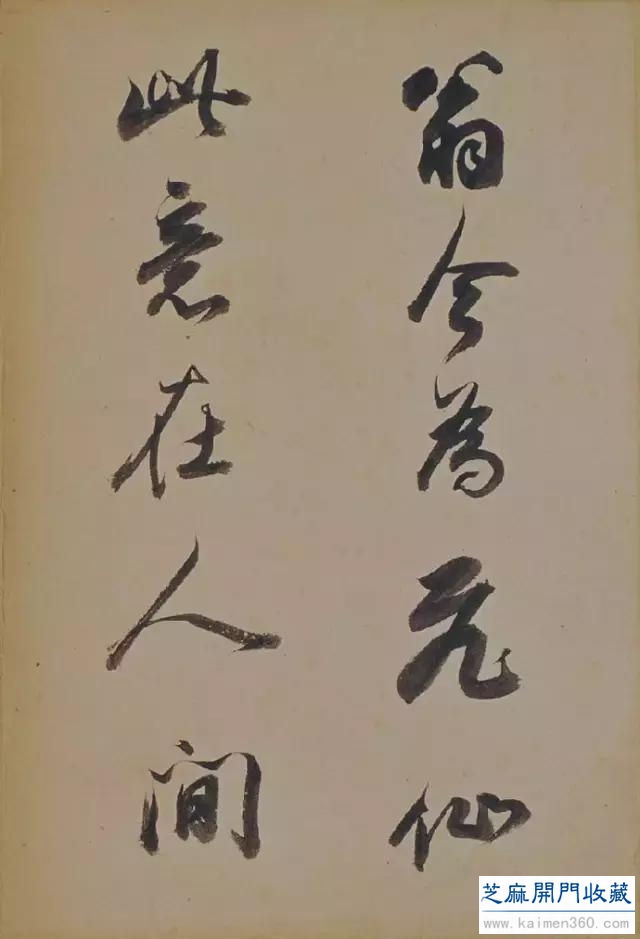 翁今為飛仙
此意在人間
芝麻開門收藏
www.kaimen360.com/